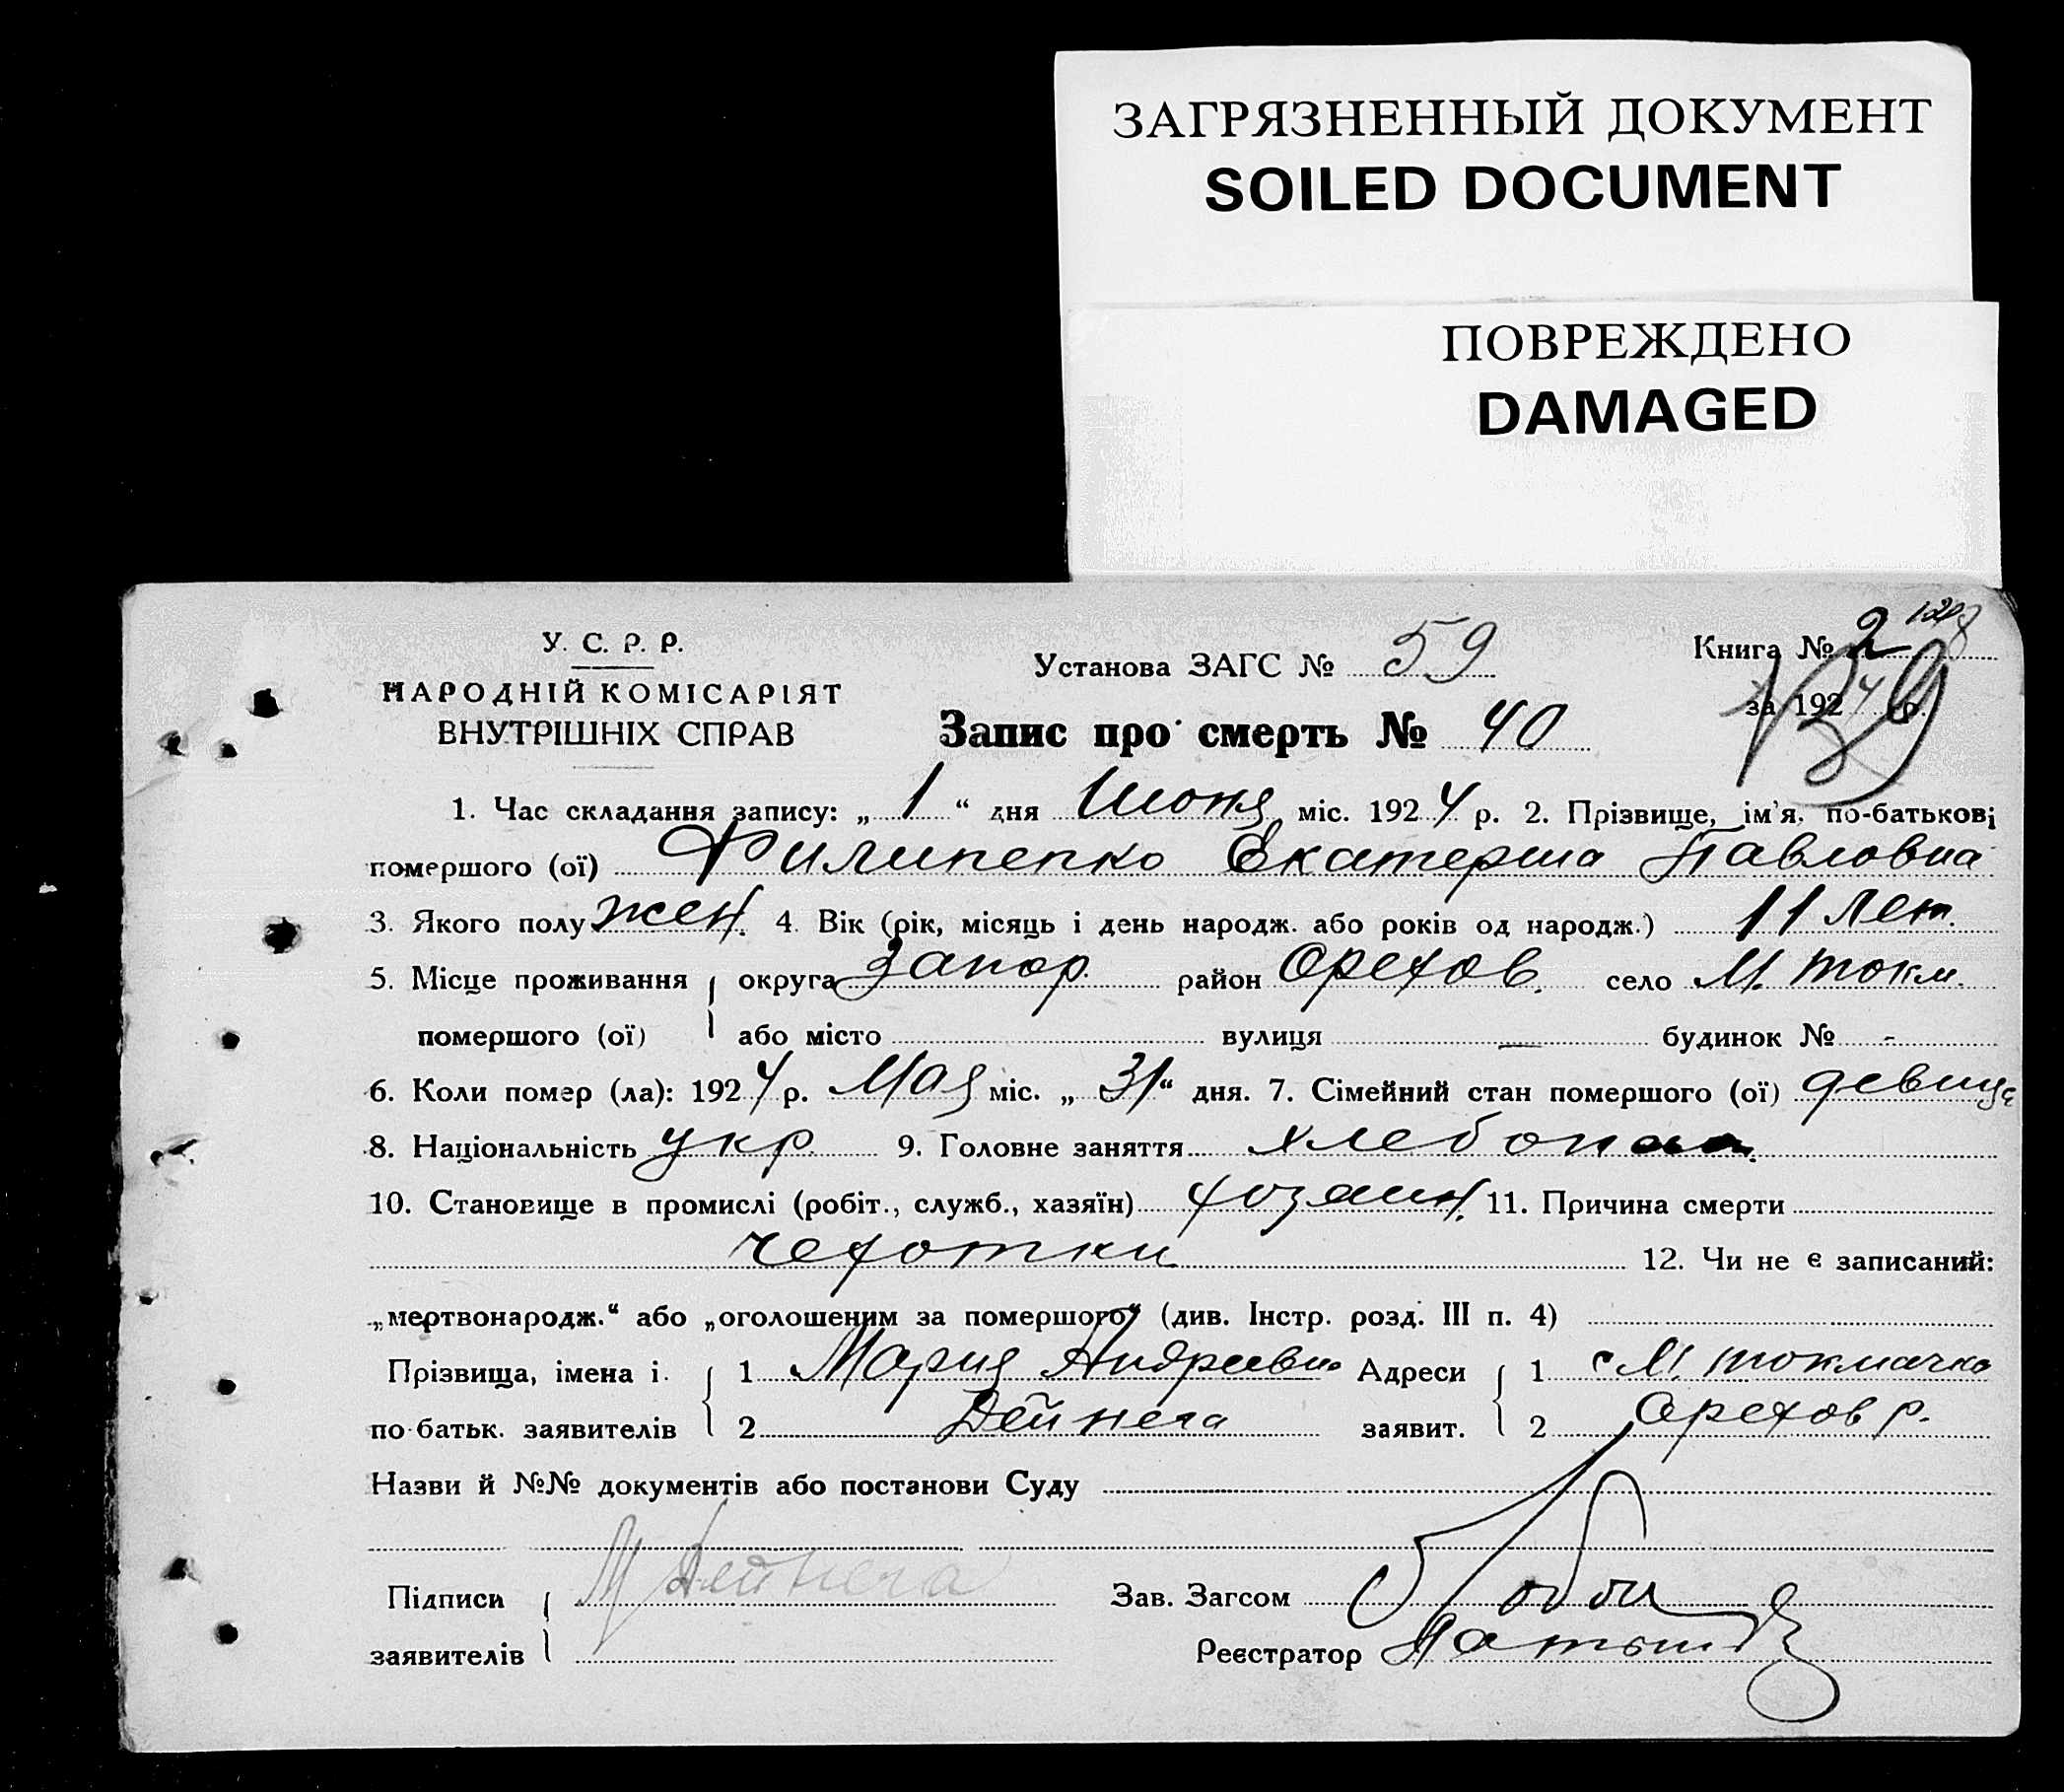 ЗАГРЯЗНЕННЫЙ ДОКУМЕНТ
SOILED DOCUMENT
ПОВРЕЖДЕНО
DAMAGED
У. С. Р. Р.
НАРОДНІЙ КОМІСАРІЯТ
ВНУТРІШНІХ СПРАВ
Установа ЗАГС № 59
Запис про смерть № 40
Книга № 2
за 1924 р.
139
1. Час складання запису: „ 1 “ дня Июня міс. 1924 р. 2. Прізвище, ім'я, по-батькові
помершого (ої) Филипенко Екатерина Павловна
3. Якого полу жен. 4. Вік (рік, місяць і день народж. або років од народж.) 11 лет.
5. Місце проживання округа Запор. район Орехов. село М. Токм.
помершого (ої) або місто вулиця — будинок № -
6. Коли помер (ла): 1924 р. Мая міс. „ 31 “ дня. 7. Сімейний стан помершого (ої) девица
8. Національність укр. 9. Головне заняття хлебопаш.
10. Становище в промислі (робіт., служб., хазяїн) хозяин. 11. Причина смерти
чехотки 12. Чи не є записаний:
„мертвонародж.“ або „оголошеним за помершого“ (див. Інстр. розд. III п. 4)
Прізвища, імена і 1 Мария Андреевна Адреси 1 с М. Токмачка
по-батьк. заявителів 2 Дейнега заявит. 2 Орехов р.
Назви й №№ документів або постанови Суду
Підписи М Дейнега Зав. Загсом
заявителів Реєстратор